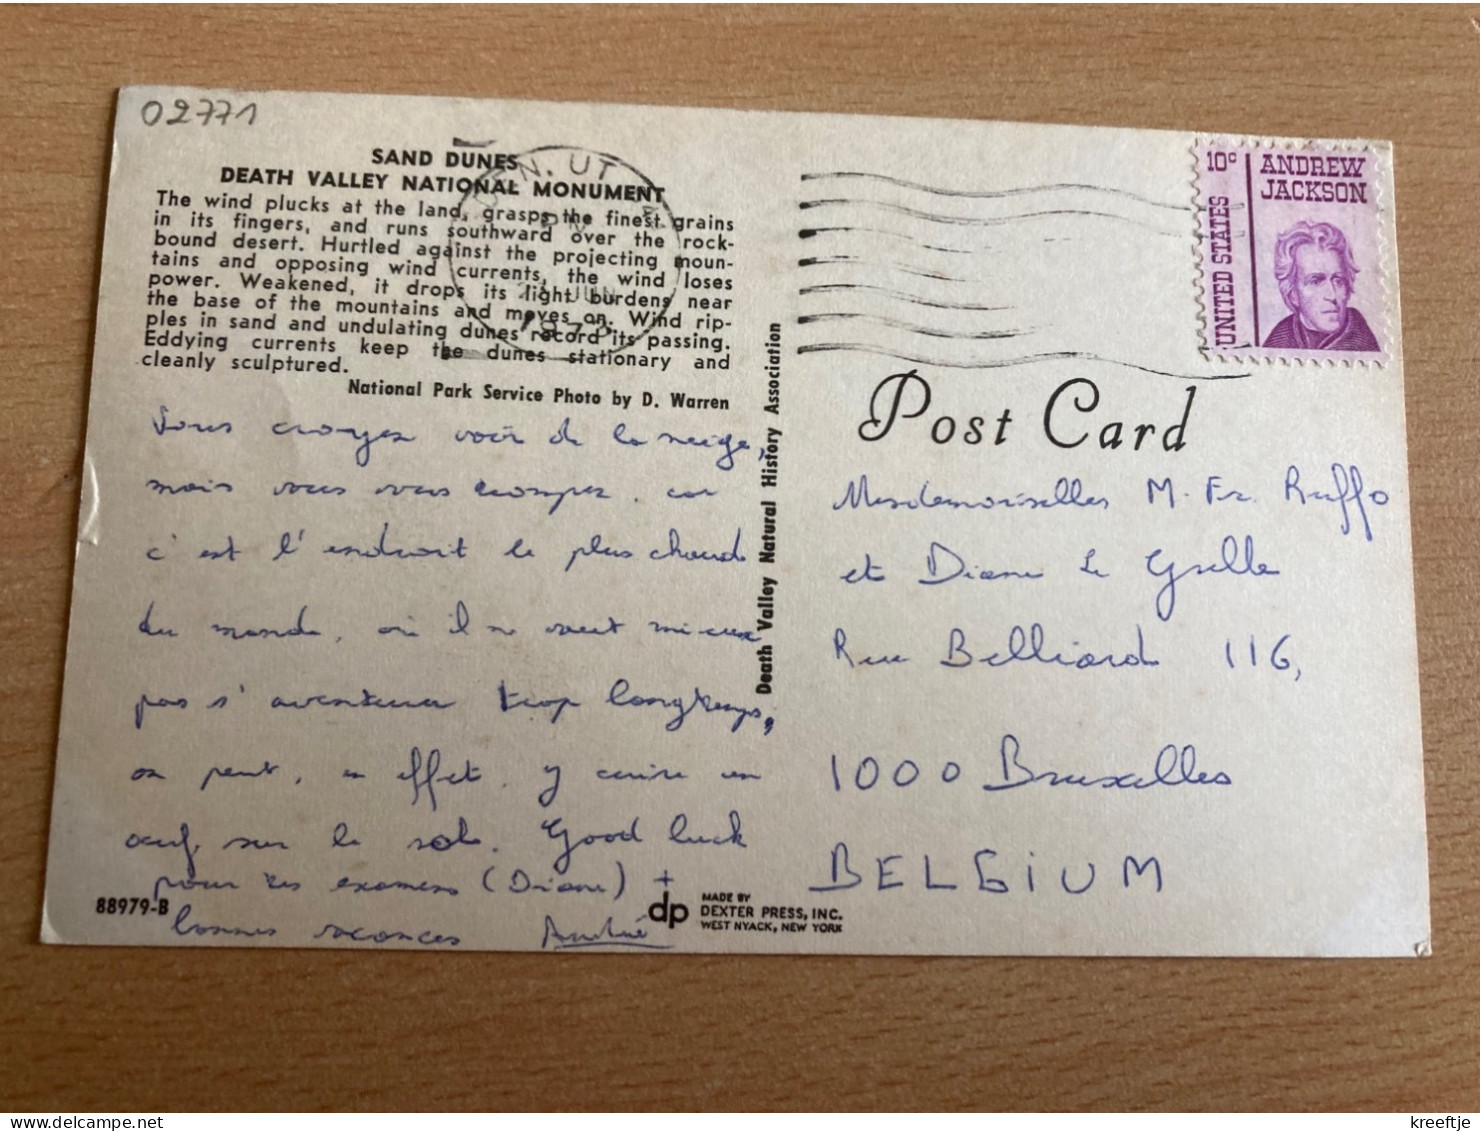 02771
SAND DUNES
DEATH VALLEY NATIONAL MONUMENT
The wind plucks at the land, grasps the finest grains
in its fingers, and runs southward over the rock-
bound desert. Hurtled against the projecting moun-
tains and opposing wind currents, the wind loses
power. Weakened, it drops its light burdens near
the base of the mountains and moves on. Wind rip-
ples in sand and undulating dunes record its passing.
Eddying currents keep the dunes stationary and
cleanly sculptured.
National Park Service Photo by D. Warren
Vous croyez voir de la neige,
mais vous vous trompez, car
c'est l'endroit le plus chaud
du monde, où il ne vaut mieux
pas s'aventurer trop longtemps,
on peut, en effet, y cuire un
œuf sur le sol. Good luck
pour tes examens (Diane) +
bonnes vacances André
88979-B
dp
MADE BY
DEXTER PRESS, INC.
WEST NYACK, NEW YORK
Death Valley Natural History Association
UT
PM
JUN
1973
10c ANDREW
JACKSON
UNITED STATES
Post Card
Mesdemoiselles M. Fr. Ruffo
et Diane le Grelle
Rue Belliard 116,
1000 Bruxelles
BELGIUM
kreeftje